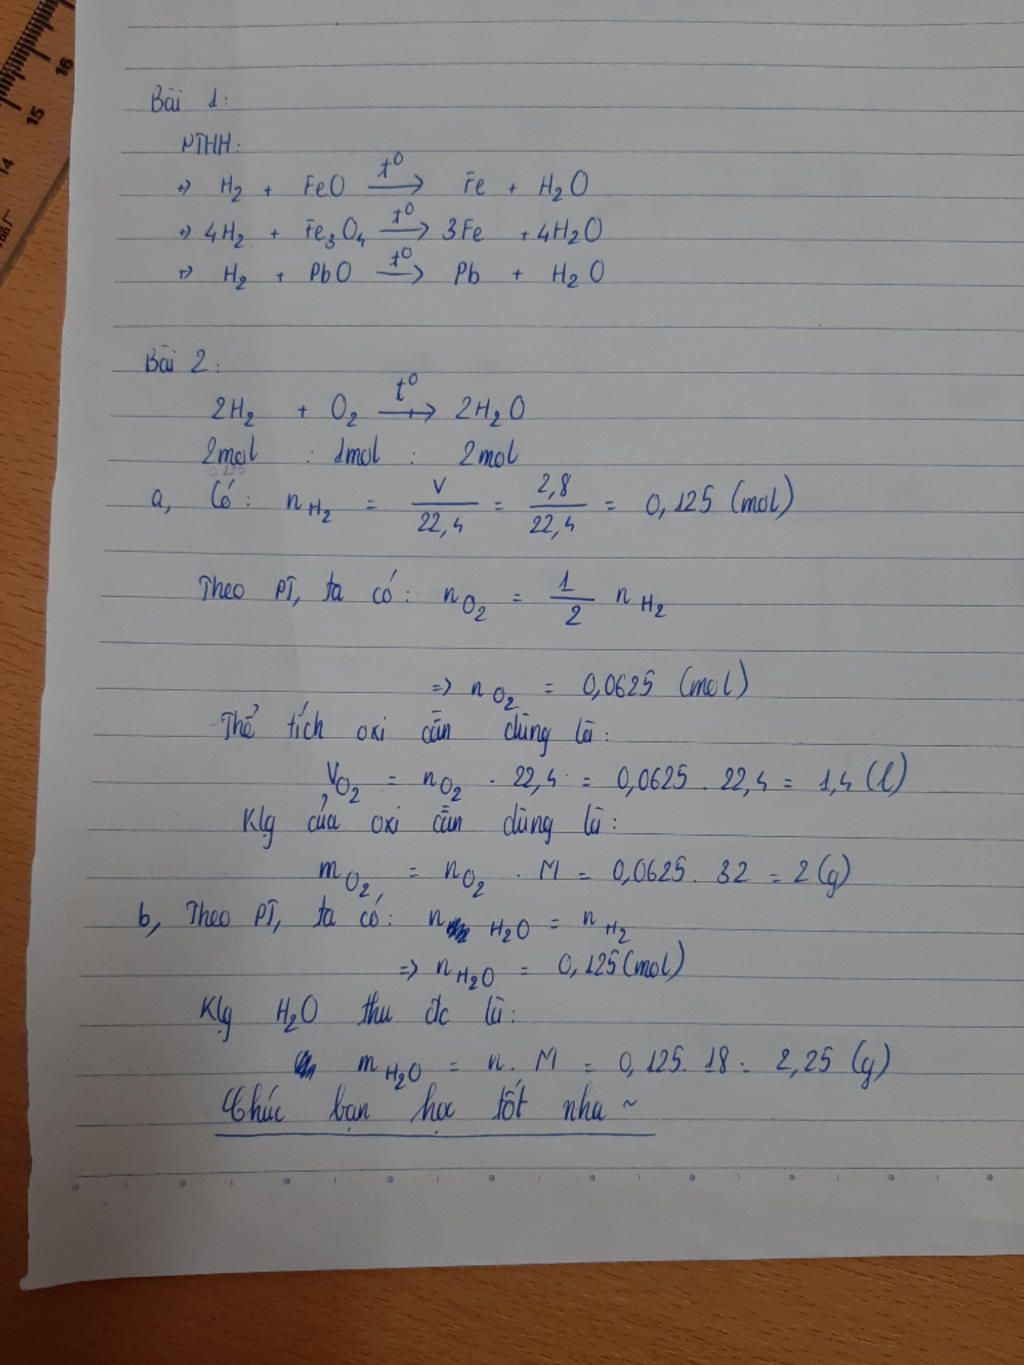 16
15
14
Bài 1:
PTHH:
=> H₂ + FeO t⁰→ Fe + H₂O
=> 4H₂ + Fe₃O₄ t⁰→ 3Fe + 4H₂O
=> H₂ + PbO t⁰→ Pb + H₂O
Bài 2:
2H₂ + O₂ t⁰→ 2H₂O
2mol : 1mol : 2mol
a, Có: n H₂ = V/22,4 = 2,8/22,4 = 0,125 (mol)
Theo PT, ta có: n O₂ = 1/2 n H₂
=> n O₂ = 0,0625 (mol)
Thể tích oxi cần dùng là:
V O₂ = n O₂ . 22,4 = 0,0625 . 22,4 = 1,4 (l)
Klg của oxi cần dùng là:
m O₂ = n O₂ . M = 0,0625 . 32 = 2 (g)
b, Theo PT, ta có: n H₂O = n H₂
=> n H₂O = 0,125 (mol)
Klg H₂O thu đc là:
m H₂O = n . M = 0,125 . 18 = 2,25 (g)
Chúc bạn học tốt nha ~